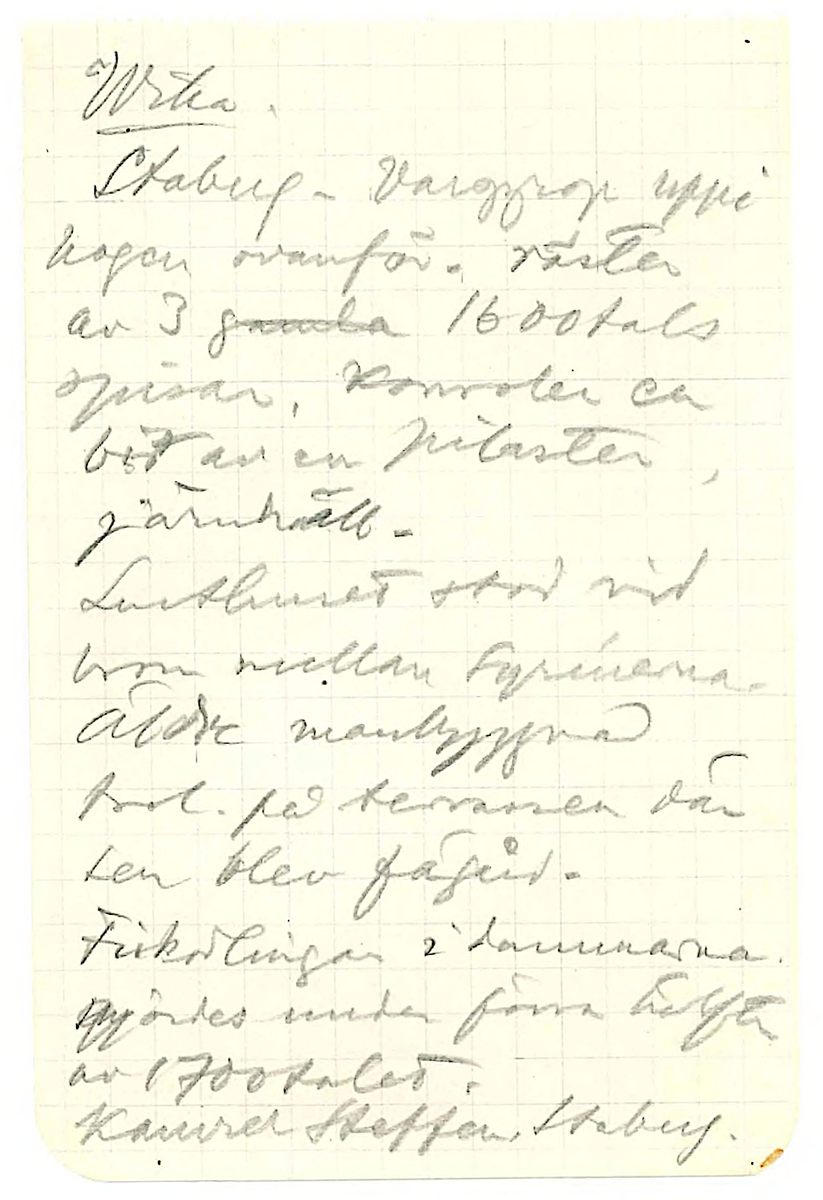 Wika.
Staberg - Varggrop uppe i
hagen ovanför. rester
av 3 gamla 1600tals
spisar, konsoler en
bit av en pilaster,
järnhäll -
Lusthuset stod vid
bron mellan syrenerna.
Äldre manbyggnad
trol. på terrassen där
sen blev fägård.
Fiskodlingar i dammarna
gjordes under förra hälften
av 1700talet.
Konrad Steffen, Staberg.